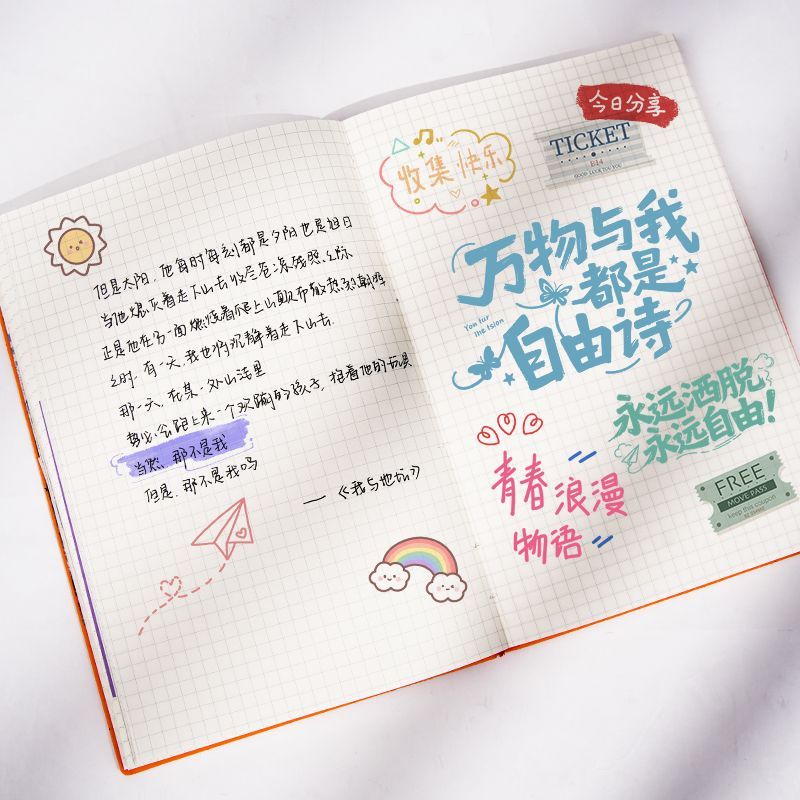 但是太阳，他每时每刻都是夕阳也是旭日
当他熄灭着走下山去收尽苍凉残照之际
正是他在另一面燃烧着爬上山巅布散热烈朝晖
之时. 有一天，我也将沉静着走下山去.
那一天，在某一处山洼里
势必会跑上来一个欢蹦的孩子，抱着他的玩具
当然，那不是我
但是，那不是我吗
—《我与地坛》
收集快乐
今日分享
TICKET
GOOD LUCK YOU YOU
万物与我
都是
自由诗
You fur
the tsion
永远洒脱
永远自由!
青春浪漫
物语
FREE
MOVE PASS
keep this coupon